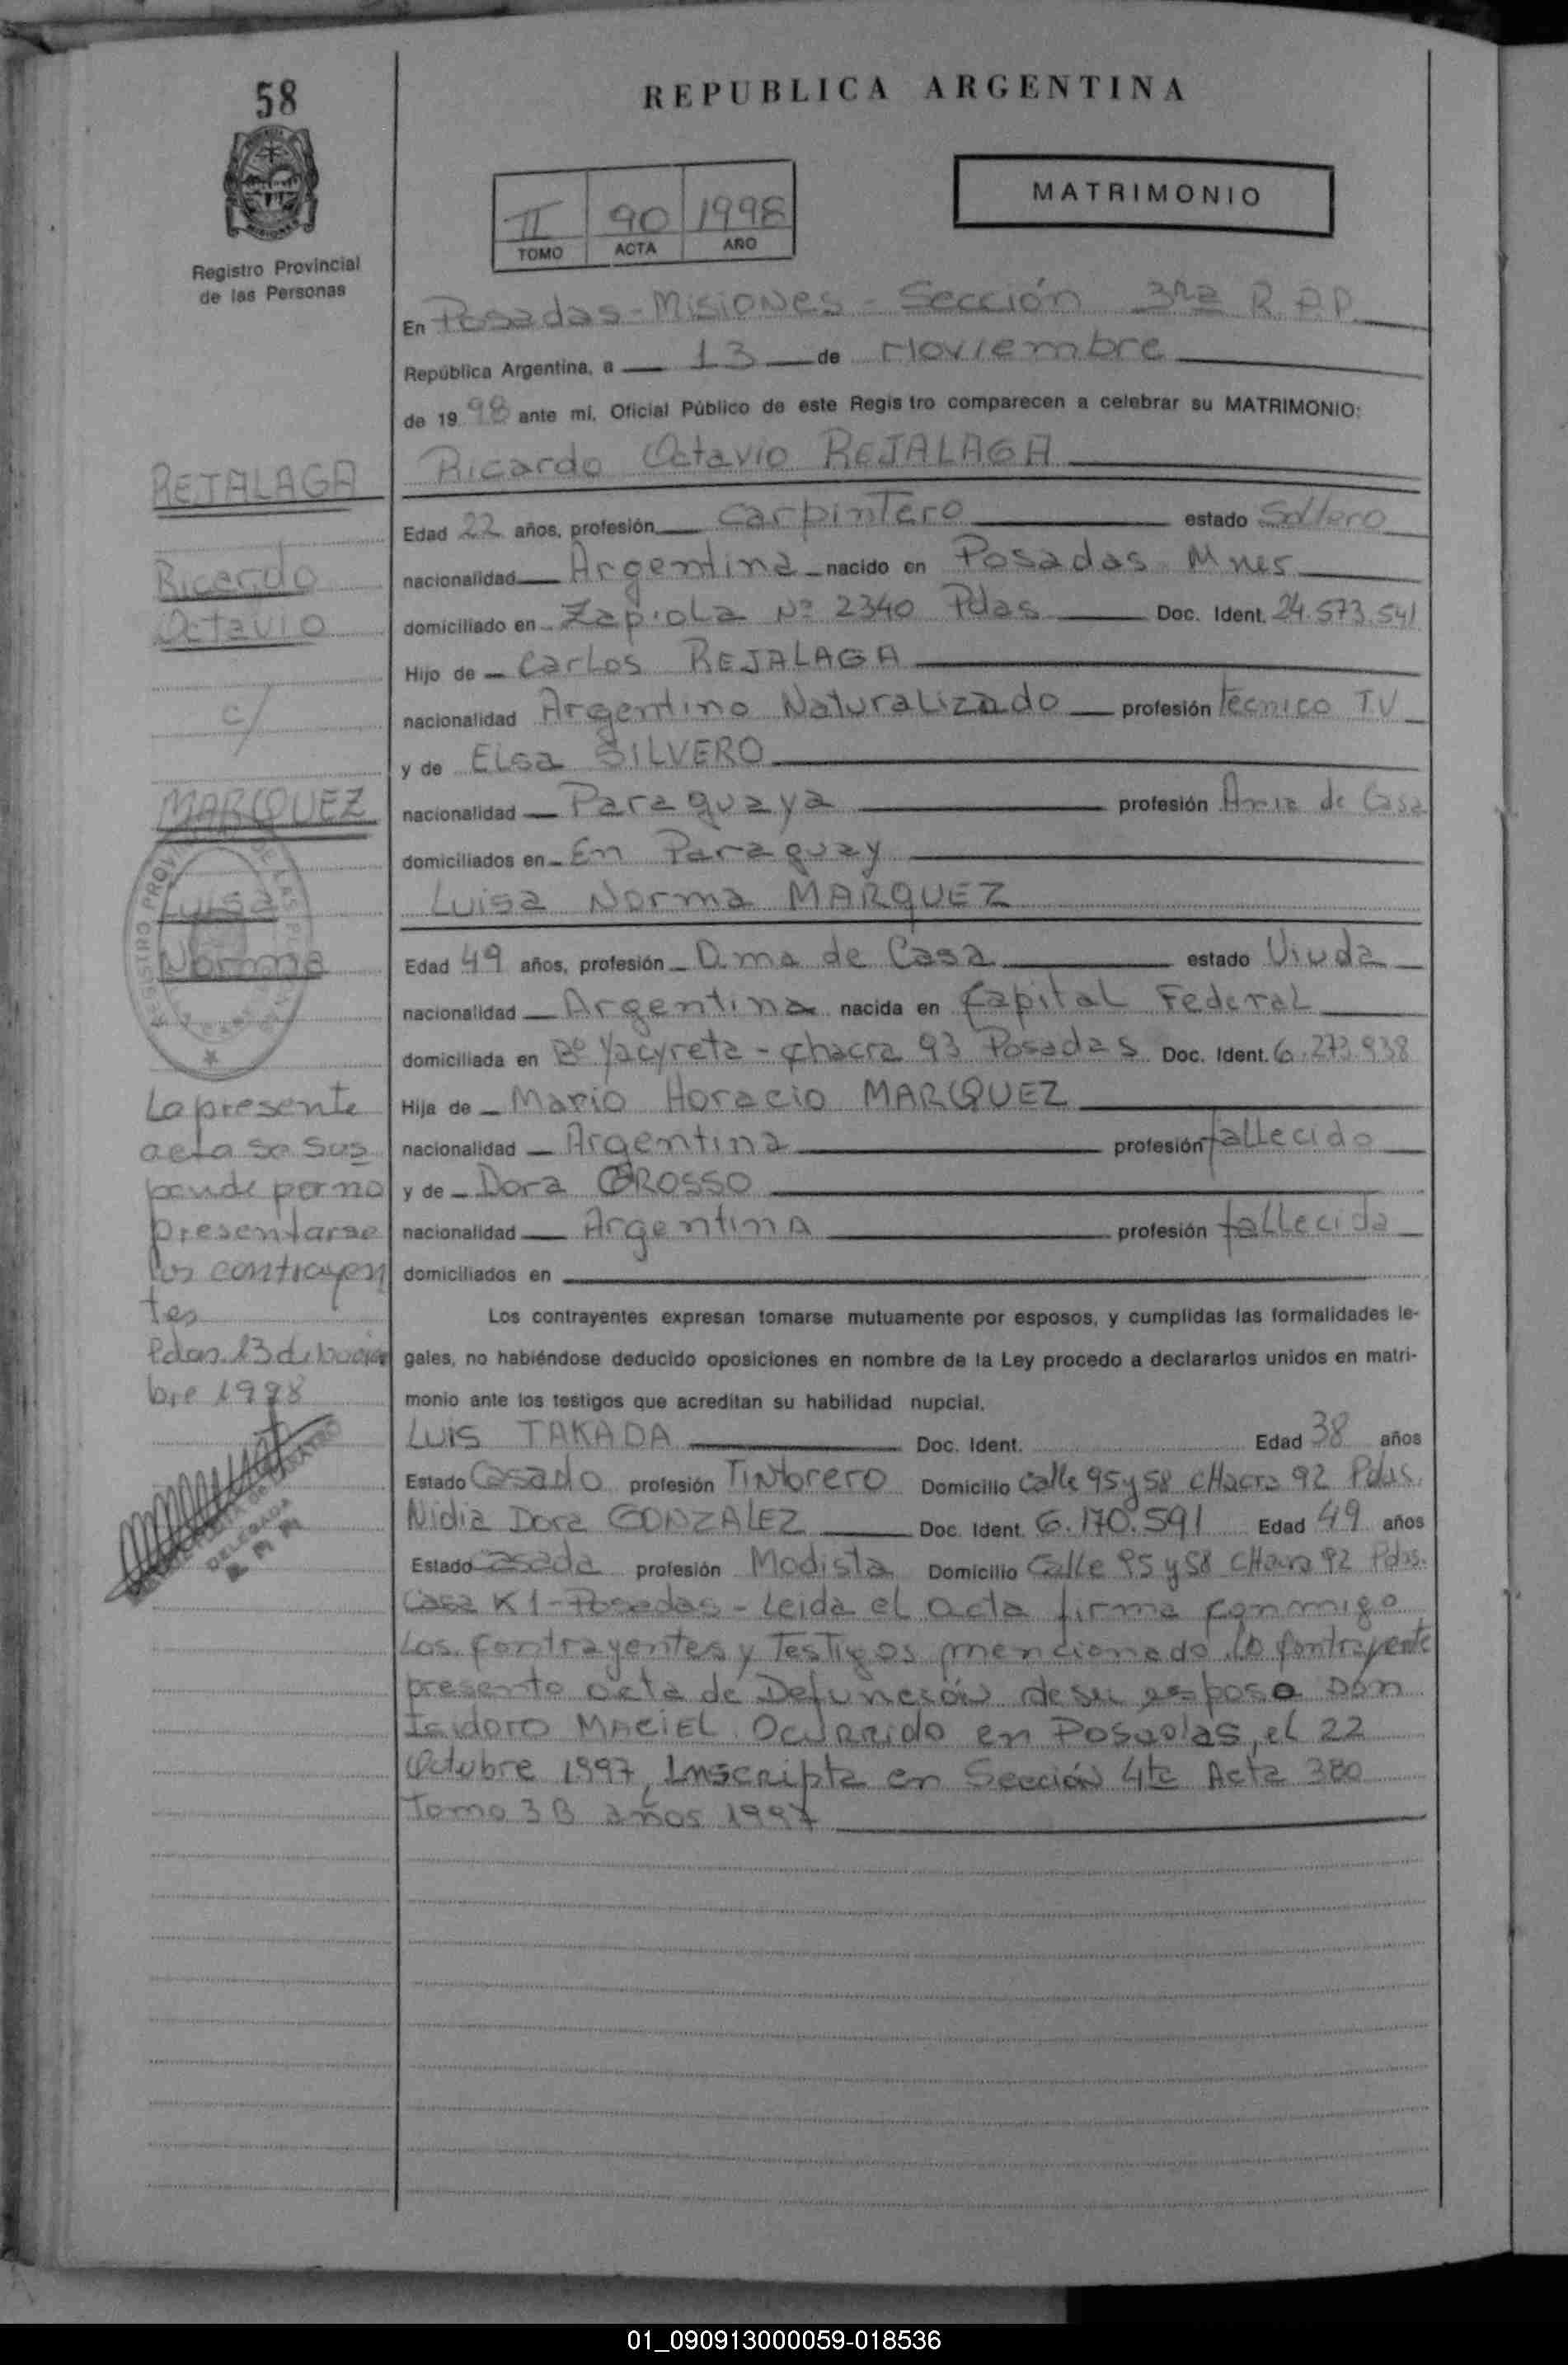 58
REPUBLICA ARGENTINA
II 90 1998
TOMO ACTA AÑO
MATRIMONIO
Registro Provincial
de las Personas
En Posadas - Misiones - Sección 3ra R.P.P.
República Argentina, a 13 de Noviembre
de 1998 ante mi, Oficial Público de este Regis tro comparecen a celebrar su MATRIMONIO:
Ricardo Octavio REJALAGA
Edad 22 años, profesión carpintero estado Soltero
nacionalidad Argentina nacido en Posadas Mnes
domiciliado en Zapiola Nº 2340 Pdas Doc. Ident. 24.573.541
Hijo de Carlos REJALAGA
nacionalidad Argentino Naturalizado profesión tecnico TV
y de Elsa SILVERO
nacionalidad Paraguaya profesión Ama de Casa
domiciliados en En Paraguay
Luisa Norma MARQUEZ
Edad 49 años, profesión Ama de Casa estado Viuda
nacionalidad Argentina nacida en Capital Federal
domiciliada en Bº Yacyreta - chacra 93 Posadas Doc. Ident. 6.273.938
Hija de Mario Horacio MARQUEZ
nacionalidad Argentina profesión fallecido
y de Dora GROSSO
nacionalidad Argentina profesión fallecida
domiciliados en
Los contrayentes expresan tomarse mutuamente por esposos, y cumplidas las formalidades le-
gales, no habiéndose deducido oposiciones en nombre de la Ley procedo a declararlos unidos en matri-
monio ante los testigos que acreditan su habilidad nupcial.
Luis TAKADA Doc. Ident. Edad 38 años
Estado Casado profesión Tintorero Domicilio calle 95 y 58 cHacra 92 Pdas.
Nidia Dora GONZALEZ Doc. Ident. 6.170.591 Edad 49 años
Estado casada profesión Modista Domicilio Calle 95 y 58 cHacra 92 Pdas.
Casa K1 - Posadas - Leida el acta firma conmigo
Los contrayentes y Testigos mencionado. La contrayente
presento acta de Defunción de su esposo Don
Isidoro MACIEL. Ocurrido en Posadas, el 22
Octubre 1997, Inscripta en Sección 4ta Acta 380
Tomo 3B años 1997
REJALAGA
Ricardo
Octavio
c/
MARQUEZ
Luisa
Norma
La presente
acta se sus
pende por no
presentarse
los contrayen
tes
Pdas. 13 de
bre 1998
DELEGADA
01_090913000059-018536